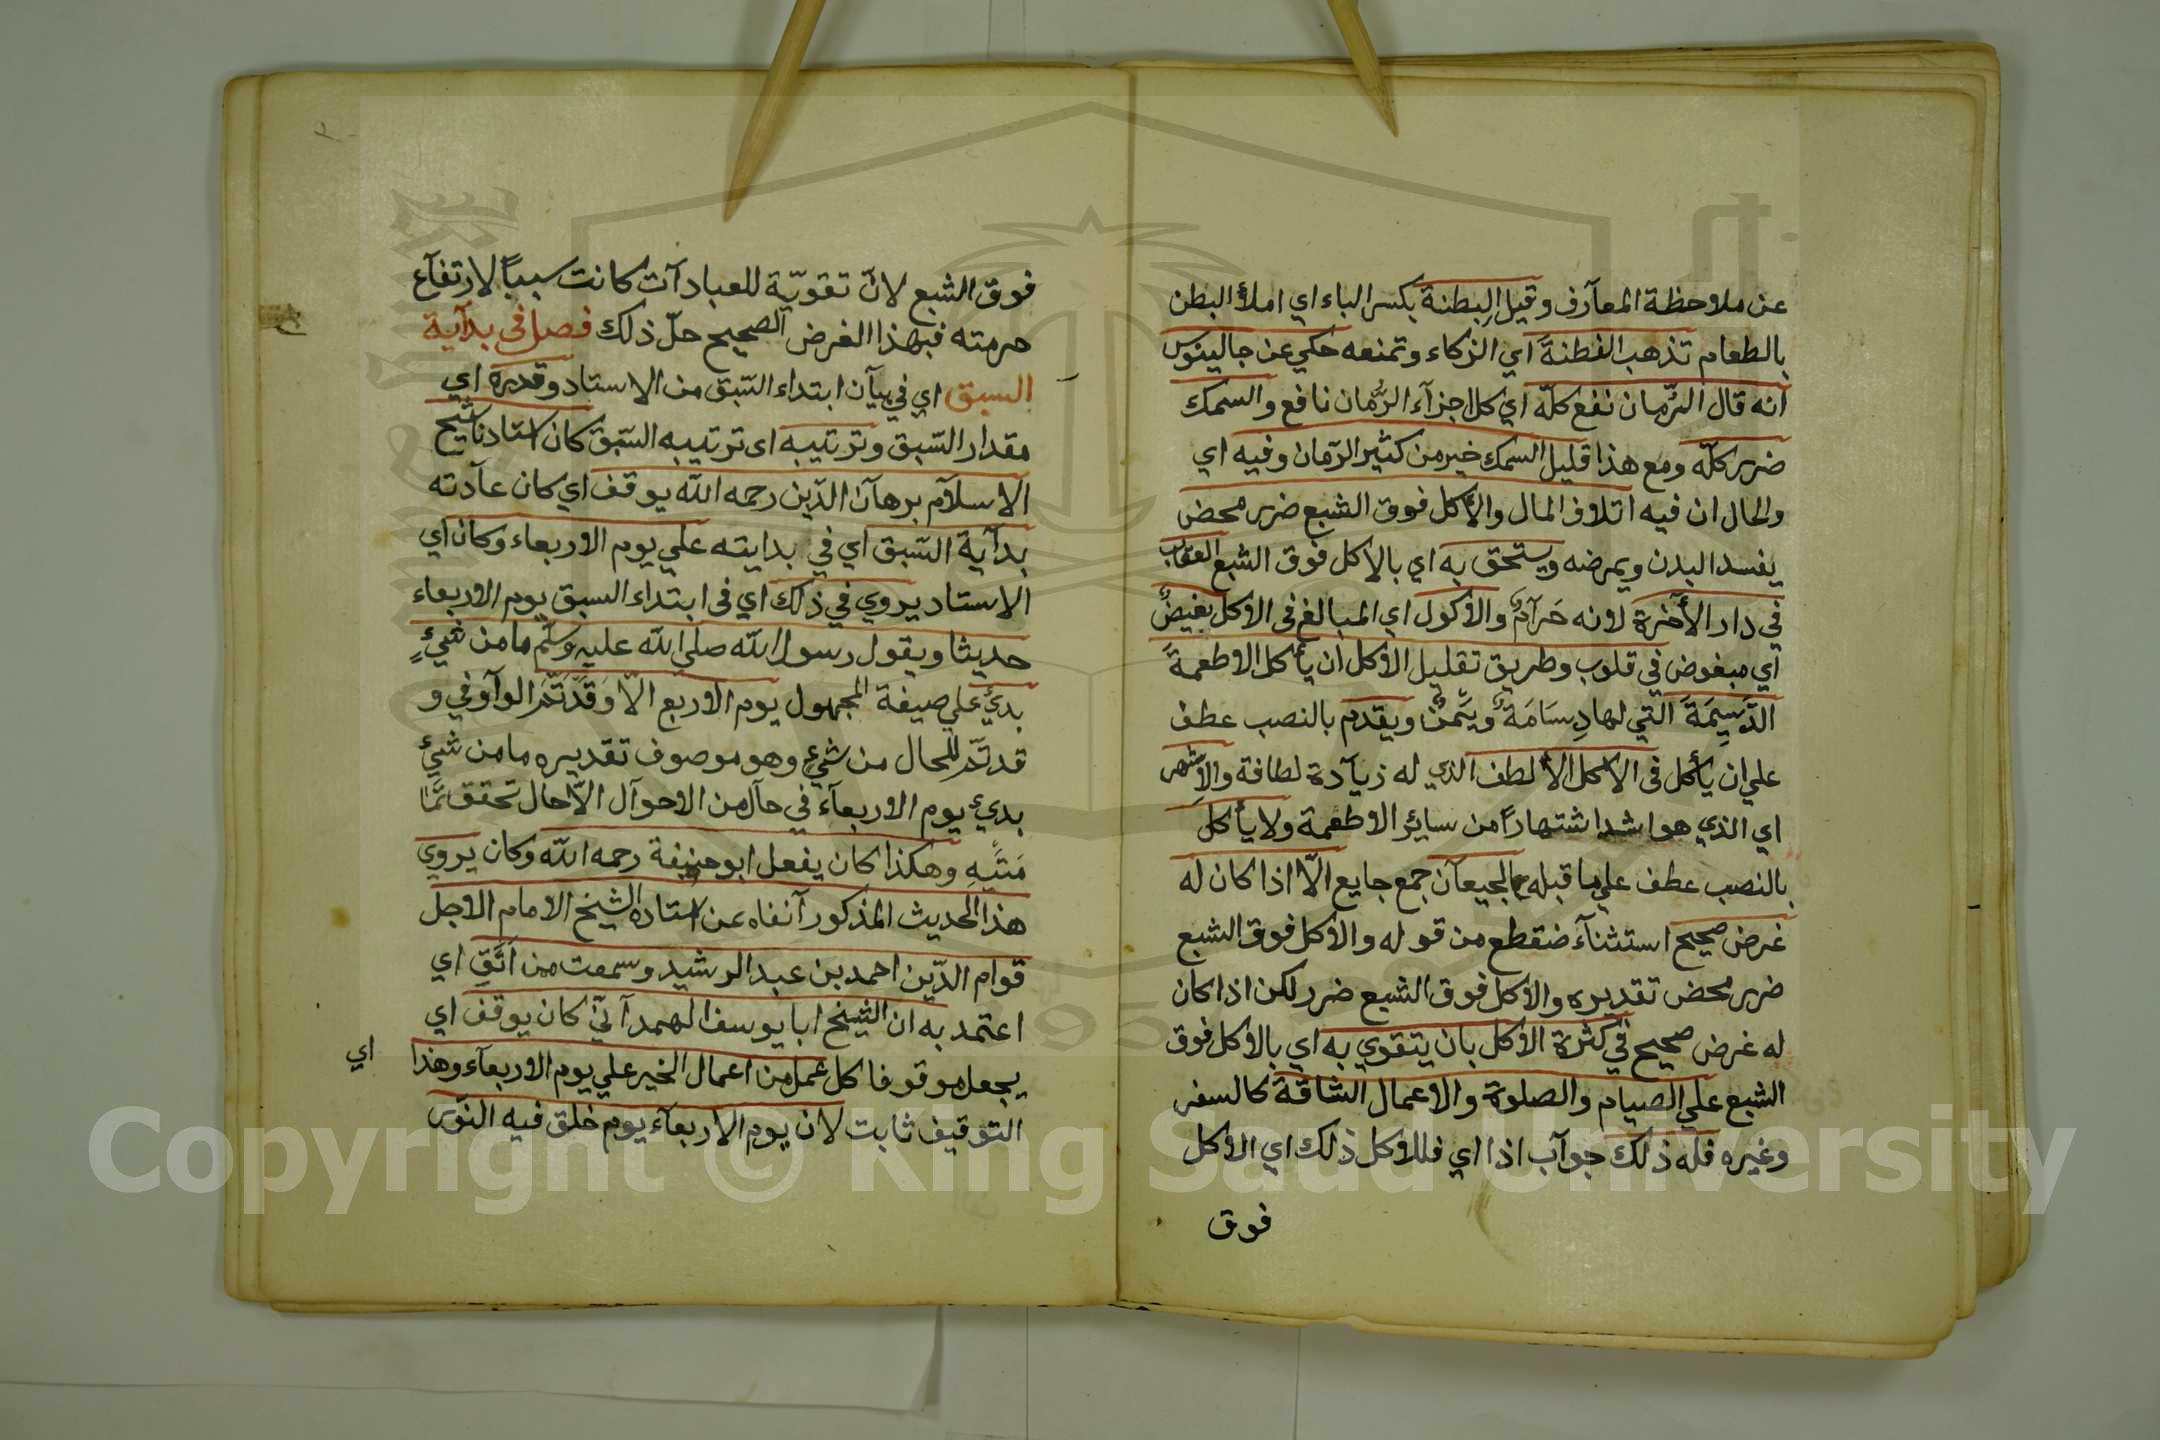 عن ملاحظة المعآرف وقيل البِطنة بكسر الباء اي املأ البطن
بالطعام تذهب الفطنةَ اي الزكاء وتمنعه حكي عن جالينوس
انه قال الرّمان نفع كلّه اي كل اجزآء الرّمان نافع والسمك
ضرر كلّه ومع هذا قليل السمك خير من كثير الرّمان وفيه اي
والحال ان فيه اتلاف المال والأكل فوق الشبع ضرر محض
يفسد البدن ويمرضه ويستحق به اي بالاكل فوق الشبع العقاب
في دار الأخرة لانه حَرآم والأكول اي المبالغ في الاكل بغيضٌ
اي مبغوض في قلوب وطريق تقليل الأكل ان يأكل الاطعمةَ
الدَّسِيمَةَ التي لها دِسَامَة ويقدم بالنصب عطف
علي ان يأكل في الاكل الألطف الذي له زيآدة لطافة والأشهر
اي الذي هو اشد اشتهاراً من سائر الاطعمة ولا يأكل
بالنصب عطف علي ما قبله مع الجيعآن جمع جايع الّا اذا كان له
غرض صحيح استثنآء منقطع من قوله والاكل فوق الشبع
ضرر محض تقديره والاكل فوق الشبع ضرر لكن اذا كان
له غرض صحيح في كثرة الاكل بان يتقوي به اي بالاكل فوق
الشبع علي الصيام والصلوة والاعمال الشاقّة كالسفر
وغيره فله ذلك جوآب اذا اي فللاكل ذلك اي الاكل
فوق
فوق الشبع لانّ تقويّة للعبادآت كانت سبباً لارتفآع
حرمته فبهذا الغرض الصحيح حلّ ذلك فصل في بدآية
السبق اي في بيآن ابتداء السّبق من الاستاد وقدره اي
مقدار السّبق وترتيبه اى ترتيبه السّبق كان استادنا شيخ
الاسلآم برهآن الدّين رحمه الله يوقف اي كان عآدته
بدآية السّبق اي في بدايته علي يوم الاربعاء وكان اي
الاستاد يروي في ذلك اي في ابتداء السبق يوم الاربعاء
حديثا ويقول رسول الله صلي الله عليه وسلّم ما من شيءٍ
بديَ علي صيغة المجهول يوم الاربع الّا وَقَدتَمَّ الوآو في و
قد تمّ للحال من شيءٍ وهو موصوف تقديره ما من شيءٍ
بديء يوم الاربعآء في حآل من الاحوآل الاّ حال تحقق تمَّا
مَتَيهِ وهكذا كان يفعل ابو حنيفة رحمه الله وكان يروي
هذا الحديث المذكور آنفاه عن استاده الشيخ الامام الاجل
قوام الدّين احمد بن عبد الرشيد وسمعت من اَثَّقِ اي
اعتمد به ان الشيخ ابا يوسف الهمدآنيّ كان يوقف اي
يجعل موقوفا كل عمل من اعمال الخير علي يوم الاربعآء وهذا
اي
التوقيف ثابت لان يوم الاربعآء يوم خلق فيه النّور
Copyright © King Saud University